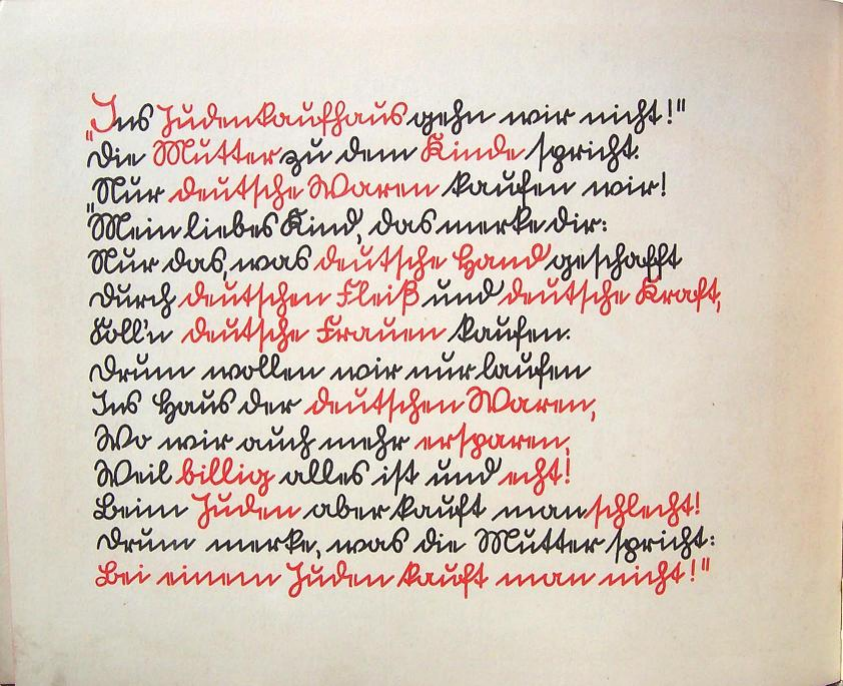 „Ins Judenkaufhaus gehn wir nicht!"
Die Mutter zu dem Kinde spricht.
„Nur deutsche Waren kaufen wir!
Mein liebes Kind, das merke dir:
Nur das, was deutsche Hand geschafft
Durch deutschen Fleiß und deutsche Kraft,
Soll'n deutsche Frauen kaufen.
Drum wollen wir nur laufen
Ins Haus der deutschen Waren,
Wo wir auch mehr ersparen,
Weil billig alles ist und echt!
Beim Juden aber kauft man schlecht!
Drum merke, was die Mutter spricht:
Bei einem Juden kauft man nicht!"